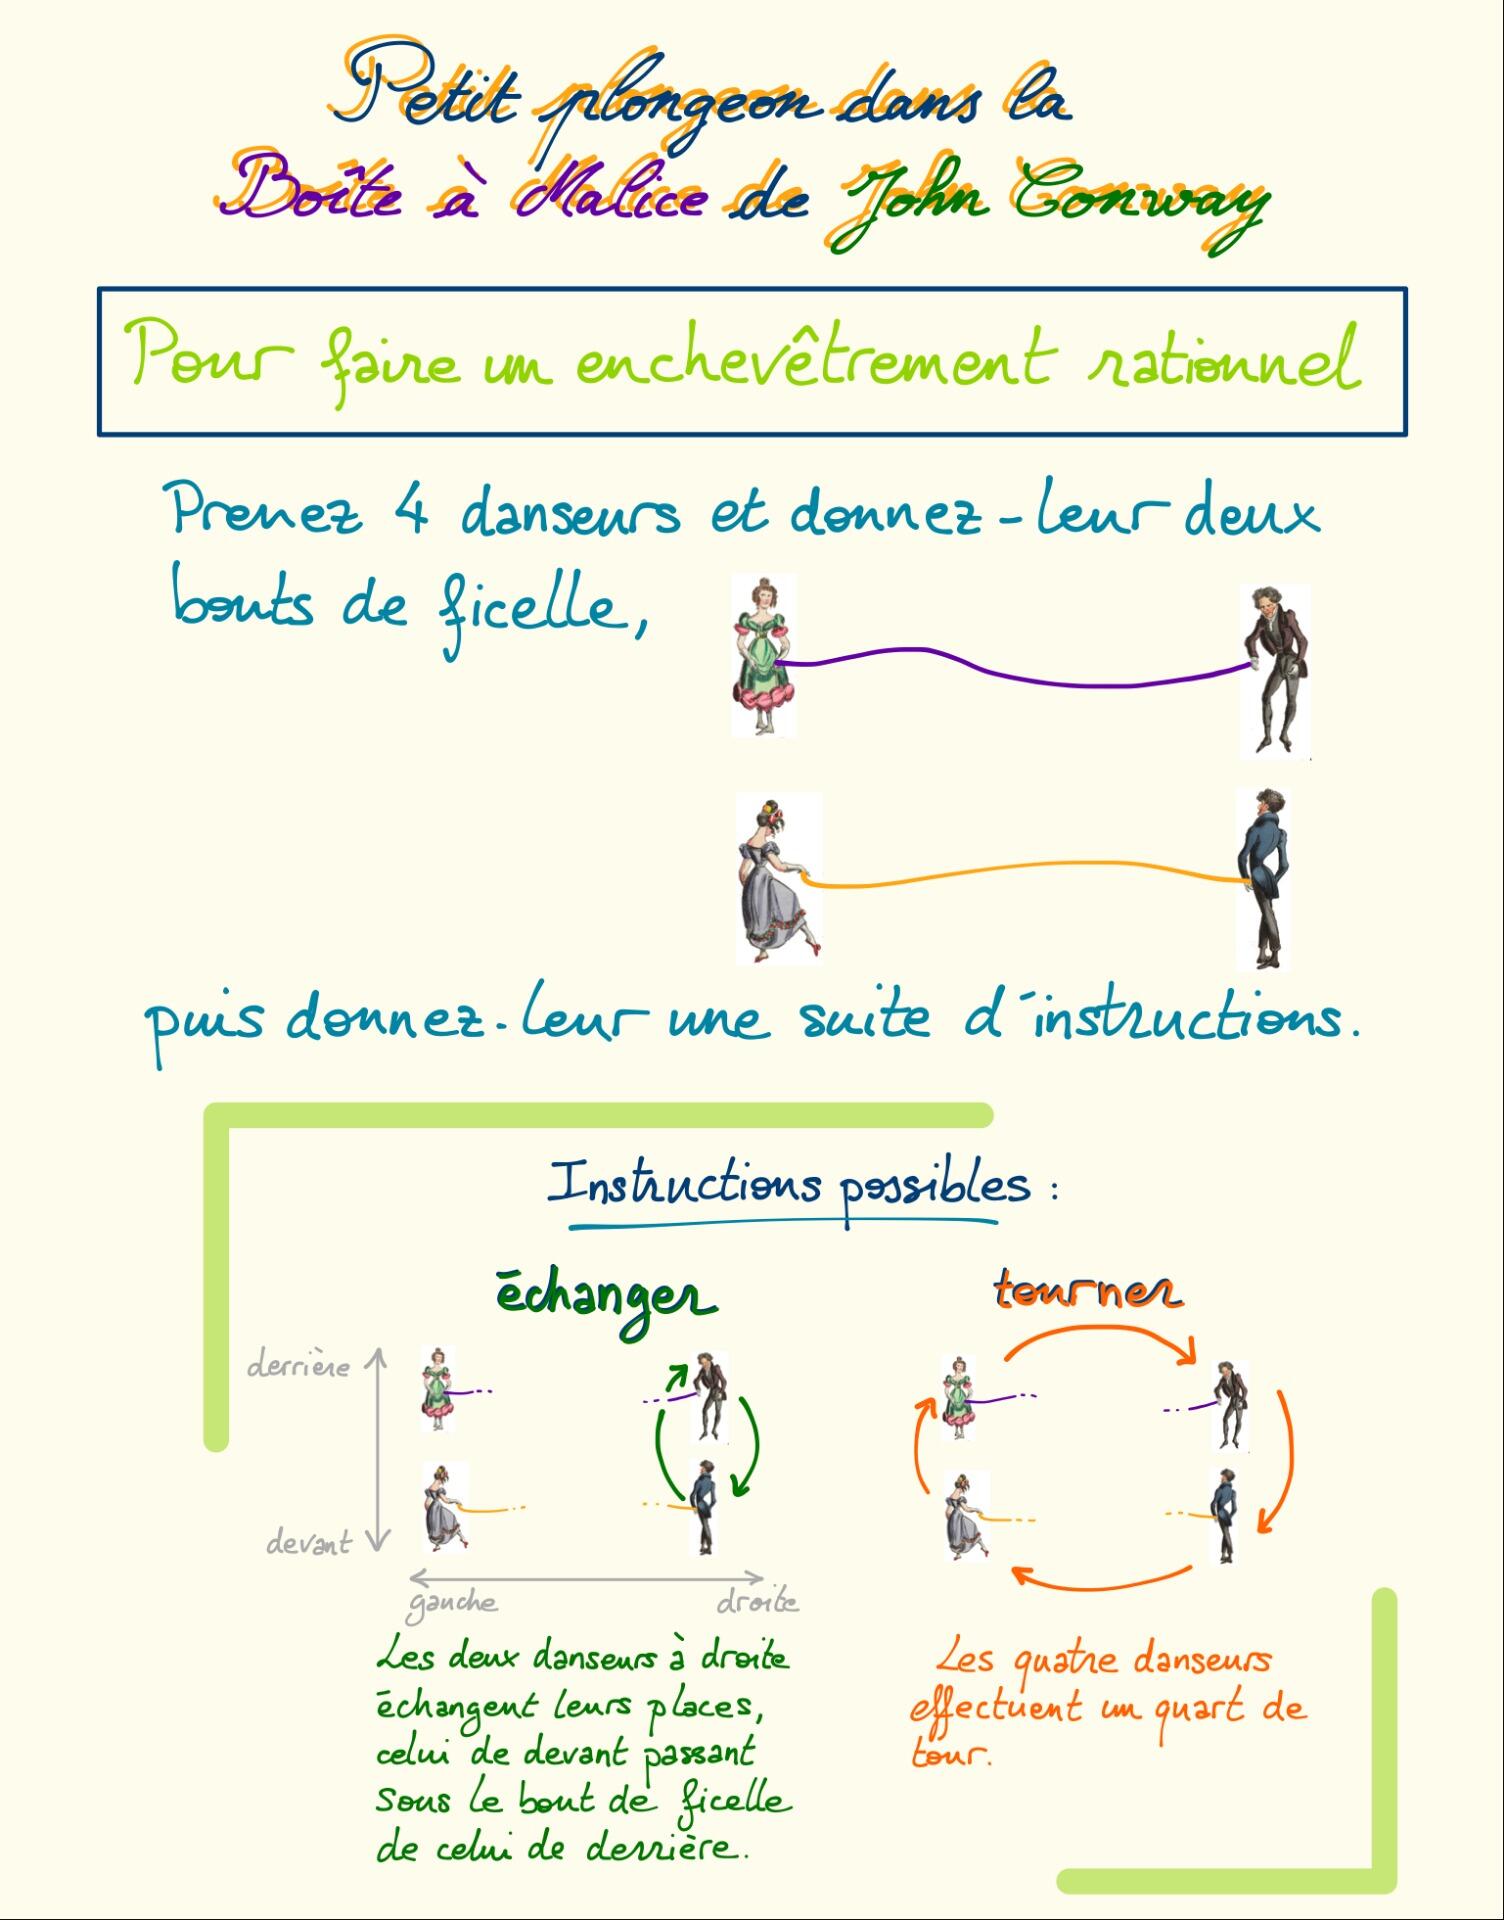 Petit plongeon dans la
Boîte à Malice de John Conway
Pour faire un enchevêtrement rationnel
Prenez 4 danseurs et donnez-leur deux
bouts de ficelle,
puis donnez-leur une suite d'instructions.
Instructions possibles :
échanger
tourner
derrière
devant
gauche
droite
Les deux danseurs à droite
échangent leurs places,
celui de devant passant
sous le bout de ficelle
de celui de derrière.
Les quatre danseurs
effectuent un quart de
tour.